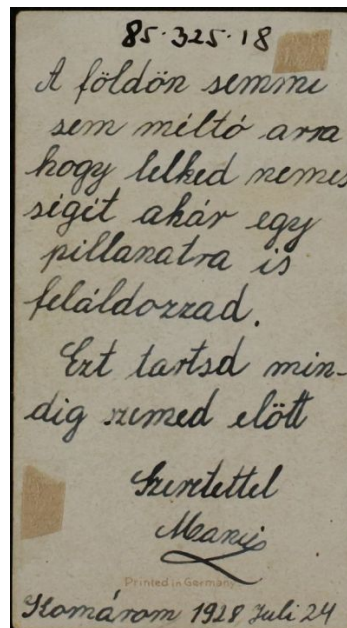 85.325.18
A földön semmi
sem méltó arra
hogy lelked nemes
ségét akár egy
pillanatra is
feláldozzad.
Ezt tartsd min-
dig szemed előtt
Szeretettel
Printed in Germany
Komárom 1928 Juli 24